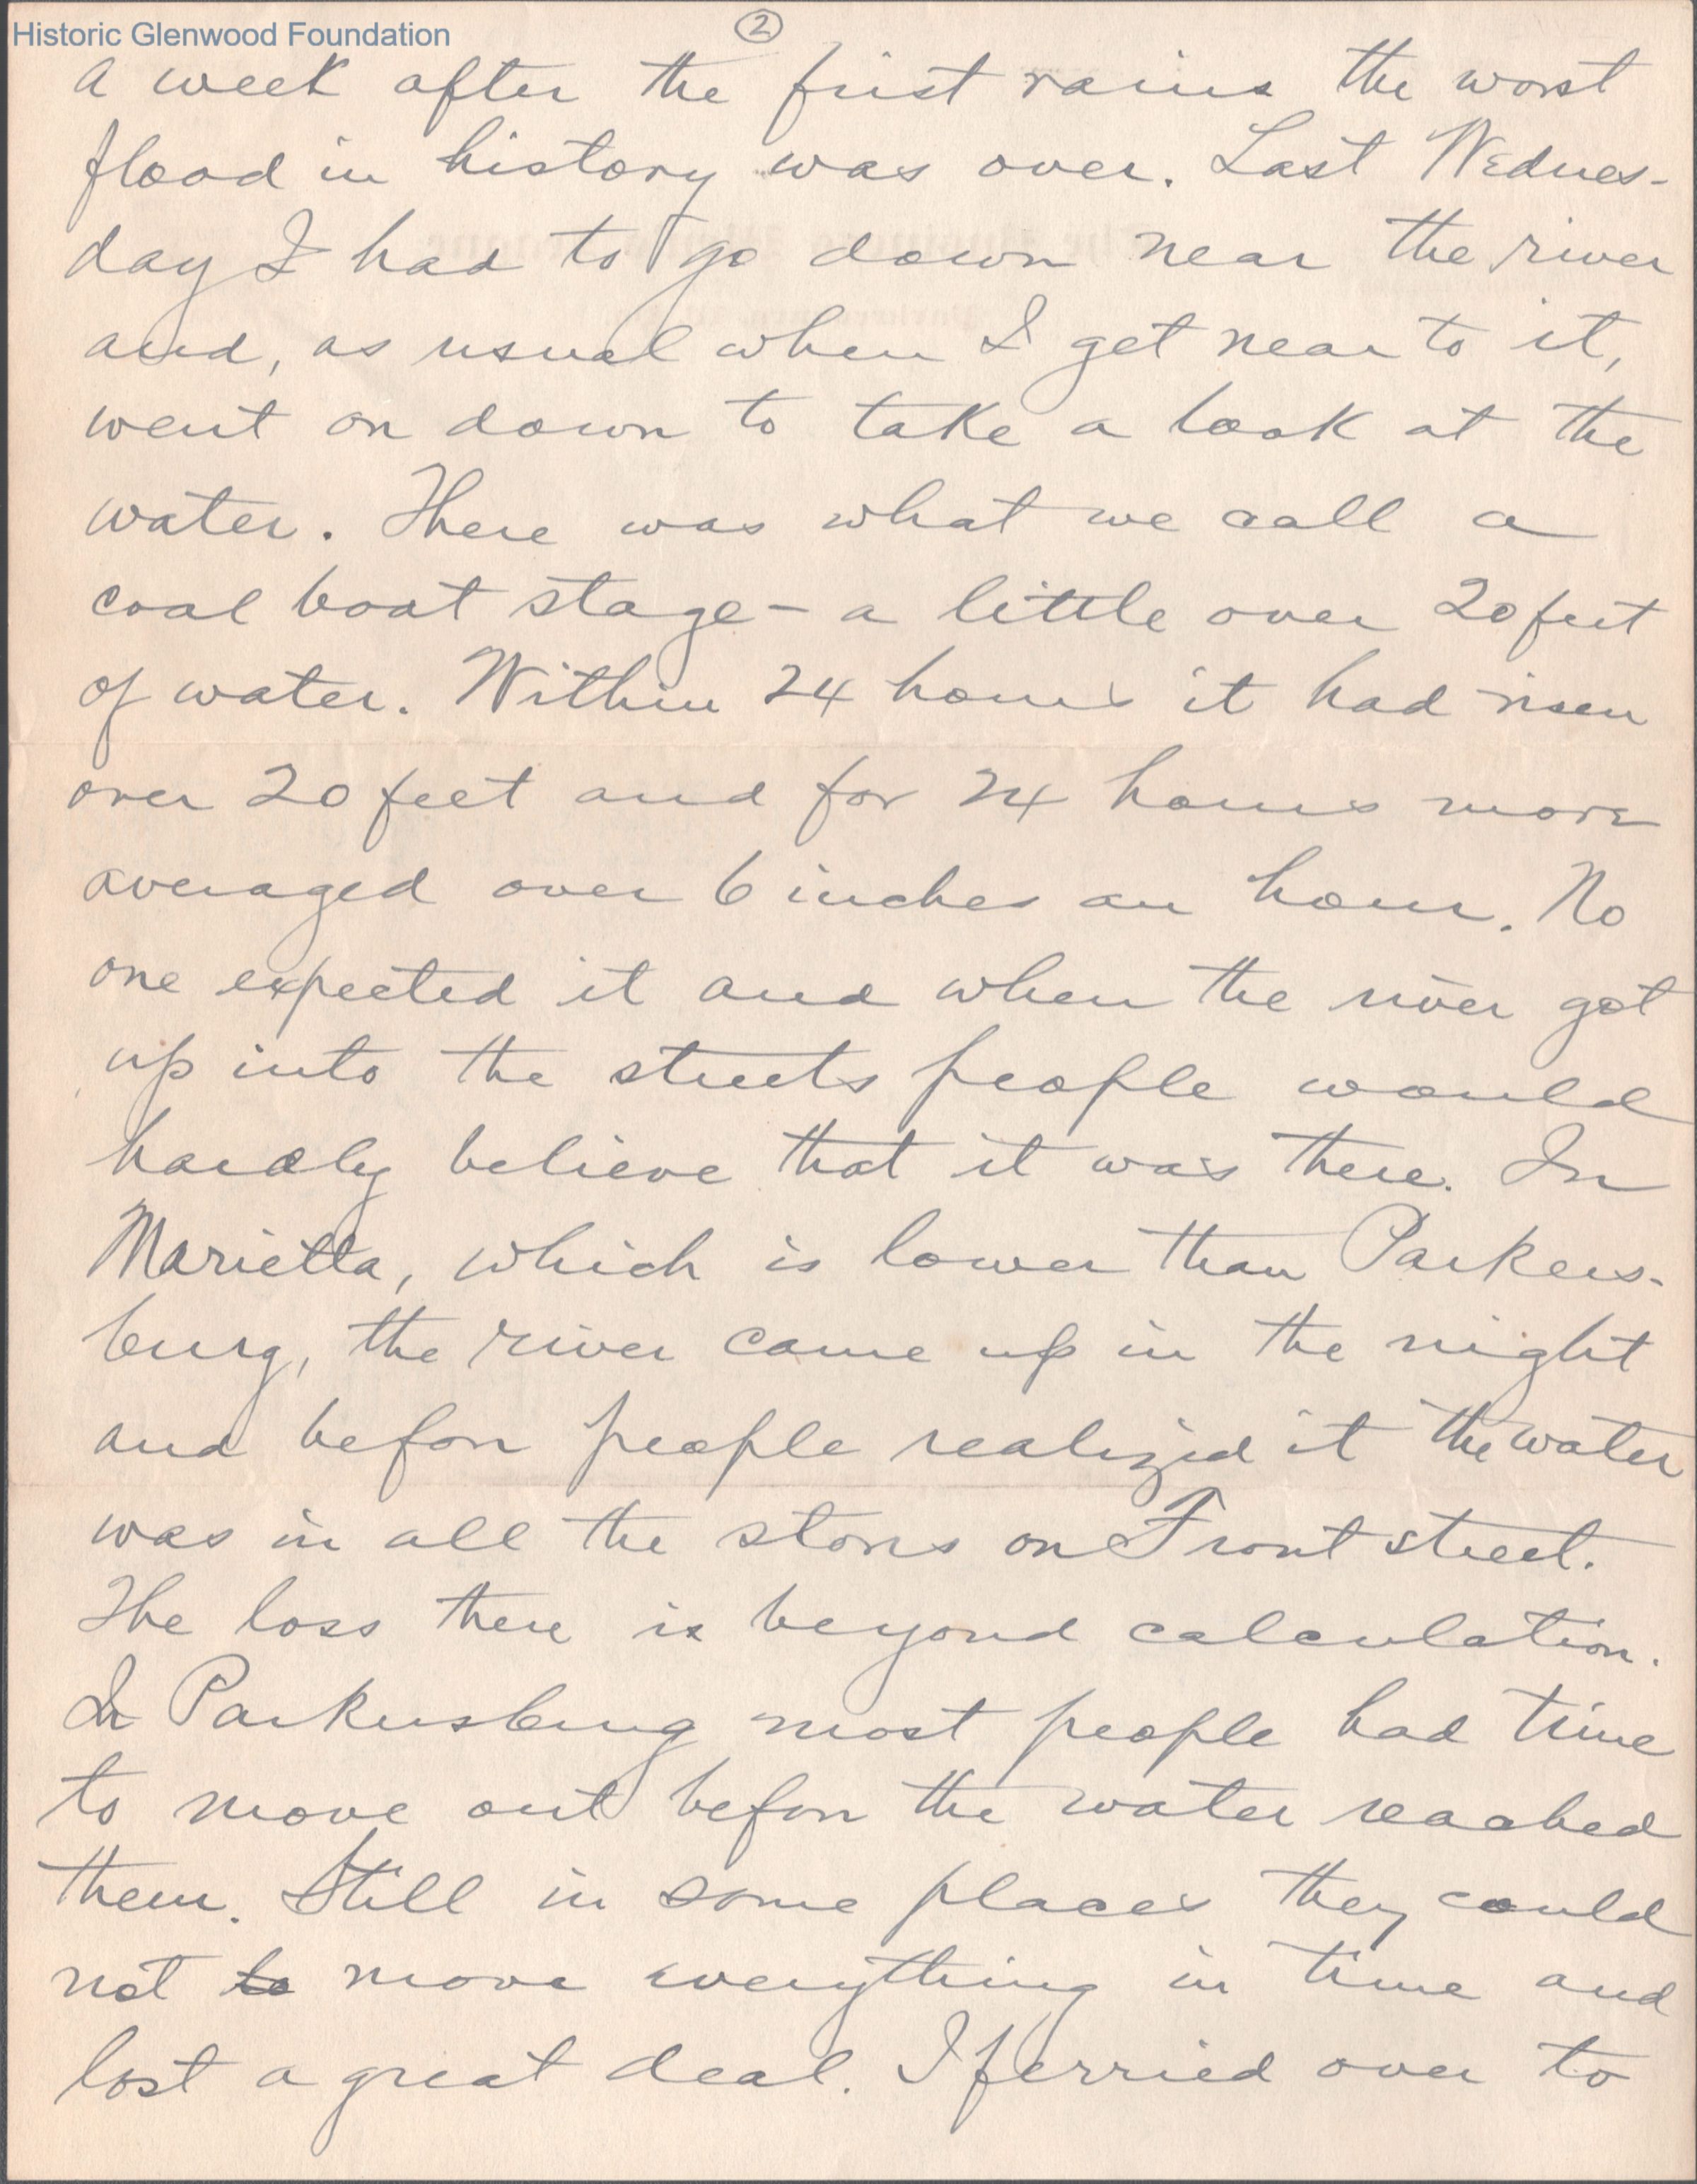 Historic Glenwood Foundation
2
a week after the first rains the worst
flood in history was over. Last Wednes-
day I had to go down near the river
and, as usual when I get near to it,
went on down to take a look at the
water. There was what we call a
coal boat stage - a little over 20 feet
of water. Within 24 hours it had risen
over 20 feet and for 24 hours more
averaged over 6 inches an hour. No
one expected it and when the river got
up into the streets people would
hardly believe that it was there. In
Marietta, which is lower than Parkers-
burg, the river came up in the night
and before people realized it the water
was in all the stores on Front street.
The loss there is beyond calculation.
In Parkersburg most people had time
to move out before the water reached
them. Still in some places they could
not to move everything in time and
lost a great deal. I ferried over to